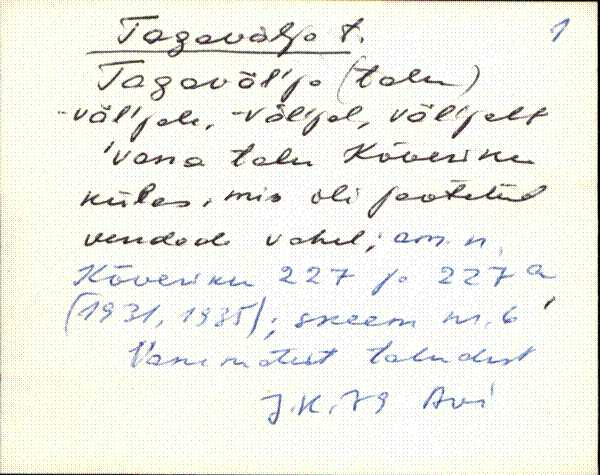 Tagavälja t. 1
Tagaväl'ja (talu)
-väl'jale, -väl'jal, väl'jalt
'vana talu Kõveriku
külas, mis oli jaotatud
vendade vahel; am. n.
Kõveriku 227 ja 227a
(1931, 1935); skeem nr. 6'
Vanimatest taludest
J.K. 79 Avi